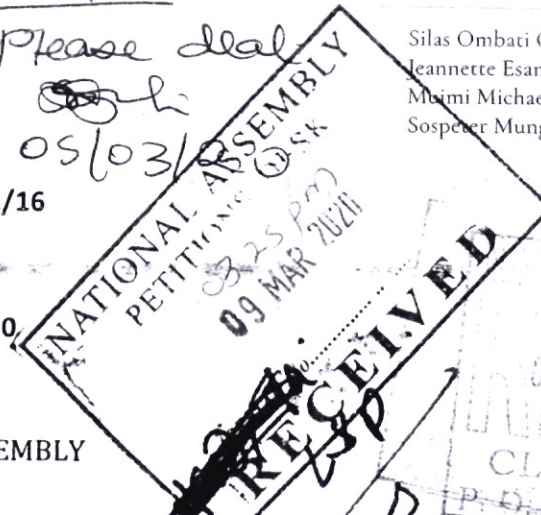 Please deal
05/03/
/16
0
EMBLY
Silas Ombati
Jeannette Esan
Muimi Michae
Sospeter Mung
NATIONAL ASSEMBLY
PETITIONS
03.25 pm
09 MAR 2020
RECEIVED
CL
P. O.